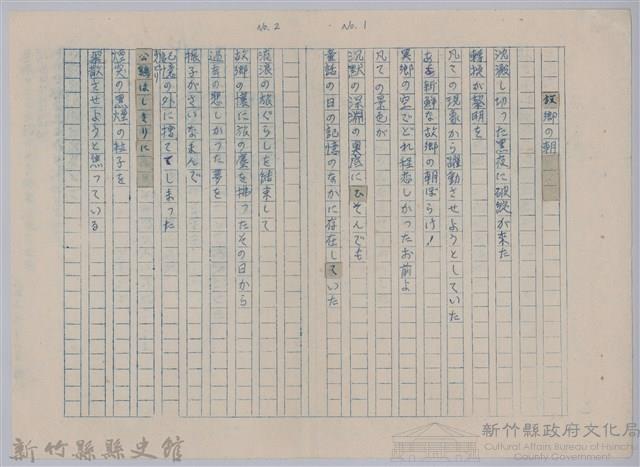 No.1
故郷の朝
沈澱し切った黒夜に破綻が来た
軽快が黎明を
凡ての現象から躍動させようとしていた
あゝ新鮮な故郷の朝ぼらけ!
異郷の空でどれ程恋しかったお前よ
凡ての景色が
沈黙の深淵の奥底にひそんでも
童話の日の記憶のなかに存在していた
No.2
流浪の旅ぐらしを結束して
故郷の懐に旅の塵を拂ったその日から
過去の悲しかった夢を
振子がさいなまんで
記憶の外に捨てゝしまった
公鶏はしきりに
煙突の黒煙の粒子を
飛散させようと思っている
新竹縣縣史館
新竹縣政府文化局
Cultural Affairs Bureau of Hsinchu
County Government